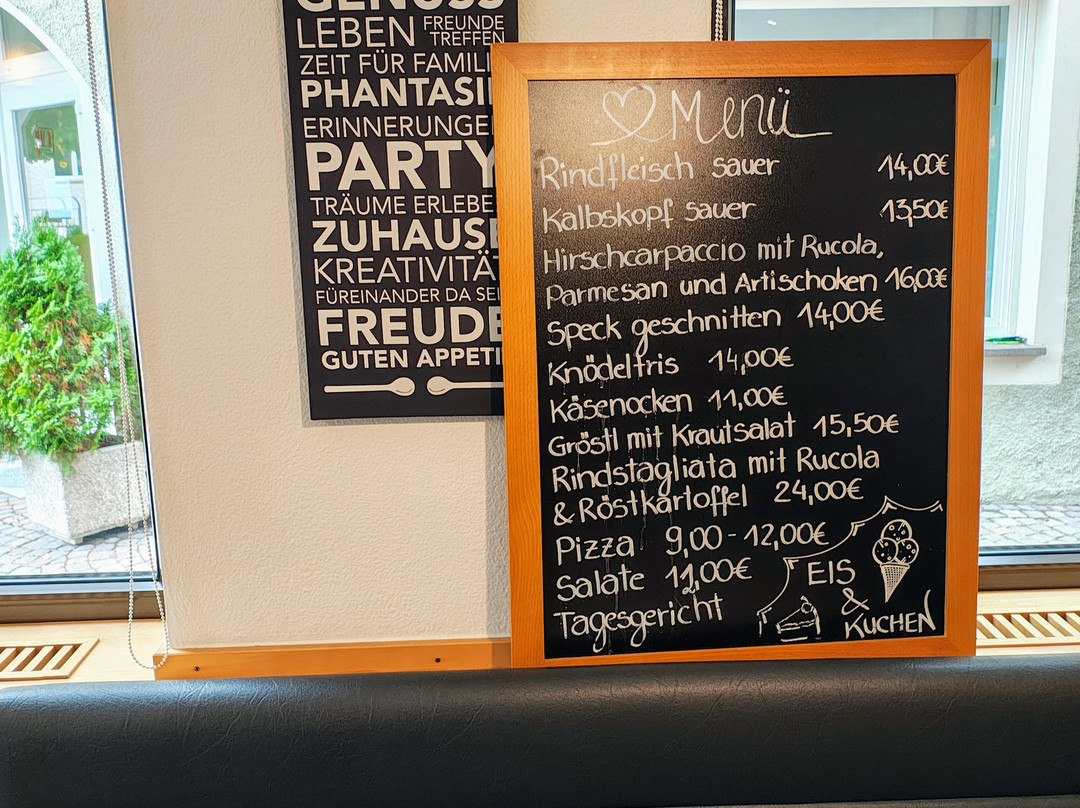 GENUSS
LEBEN FREUNDE TREFFEN
ZEIT FÜR FAMILI
PHANTASI
ERINNERUNGE
PARTY
TRÄUME ERLEBE
ZUHAUSE
KREATIVITÄT
FÜREINANDER DA SEI
FREUDE
GUTEN APPETI
Menü
Rindfleisch sauer 14,00€
Kalbskopf sauer 13,50€
Hirschcarpaccio mit Rucola,
Parmesan und Artischoken 16,00€
Speck geschnitten 14,00€
Knödeltris 14,00€
Käsenocken 11,00€
Gröstl mit Krautsalat 15,50€
Rindstagliata mit Rucola
& Röstkartoffel 24,00€
Pizza 9,00-12,00€
Salate 11,00€
Tagesgericht
EIS
&
KUCHEN